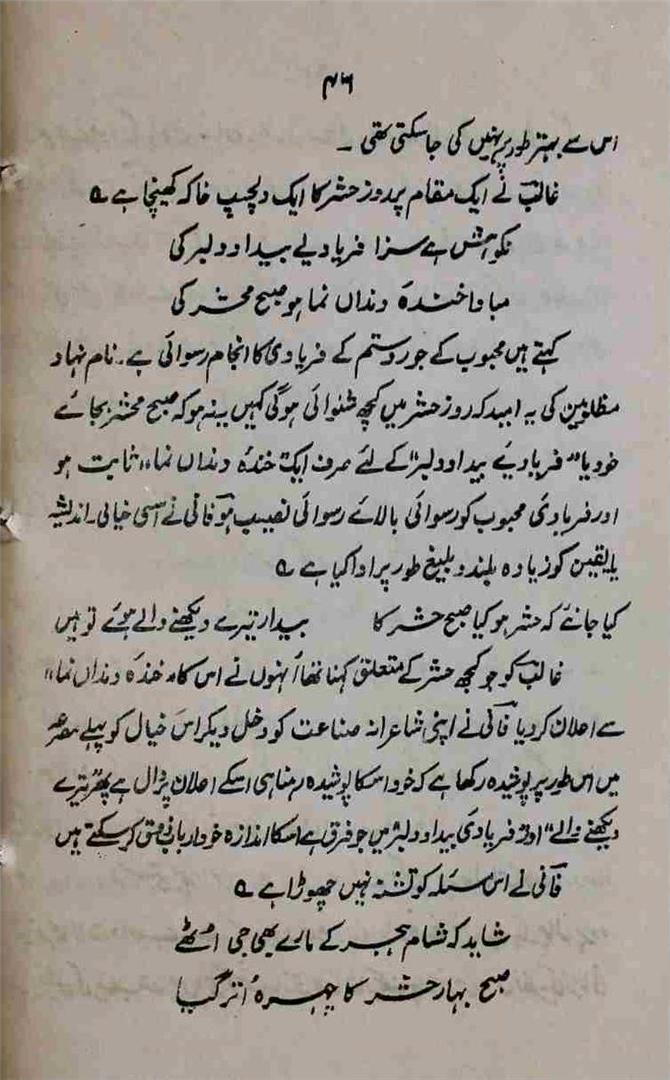 ۴۶
اس سے بہتر طور پر نہیں کی جا سکتی تھی ۔
غالبؔ نے ایک مقام پر روز حشر کا ایک دلچسپ خاکہ کھینچا ہے ؎
نکوہش ہے سزا فریادیے بیداد دلبر کی
مبادا خندہ دنداں نما ہو صبح محشر کی
کہتے ہیں محبوب کے جور و ستم کے فریادی کا انجام رسوائی ہے۔ نام نہاد
مظلومین کی یہ امید کہ روز حشر میں کچھ شنوائی ہوگی کہیں یہ نہ ہو کہ صبح محشر بجائے
خود یا "فریادیے بیداد دلبر" کے لئے صرف ایک "خندہ دنداں نما" ثابت ہو
اور فریادی محبوب کو رسوائی بالائے رسوائی نصیب ہو فانیؔ نے اسی خیالی۔ اندیشہ
یا یقین کو زیادہ بلند و بلیغ طور پر ادا کیا ہے ؎
کیا جانئے کہ حشر ہو کیا صبح حشر کا بیدار تیرے دیکھنے والے ہوئے تو ہیں
غالبؔ کو جو کچھ حشر کے متعلق کہنا تھا اُنہوں نے اس کا "خندہ دنداں نما"
سے اعلان کر دیا فانیؔ نے اپنی شاعرانہ صناعت کو دخل دیکر اس خیال کو پہلے مصرعہ
میں اس طور پر پوشیدہ رکھا ہے کہ خود اسکا پوشیدہ رہنا ہی اسکے اعلان پر دال ہے پھر "تیرے
دیکھنے والے" اور "فریادی بیداد دلبر" میں جو فرق ہے اسکا اندازہ خود ارباب ذوق کر سکتے ہیں
فانیؔ نے اس مسئلہ کو تشنہ نہیں چھوڑا ہے ؎
شاید کہ شام ہجر کے مارے بھی جی اُٹھے
صبح بہار حشر کا چہرہ اُتر گیا